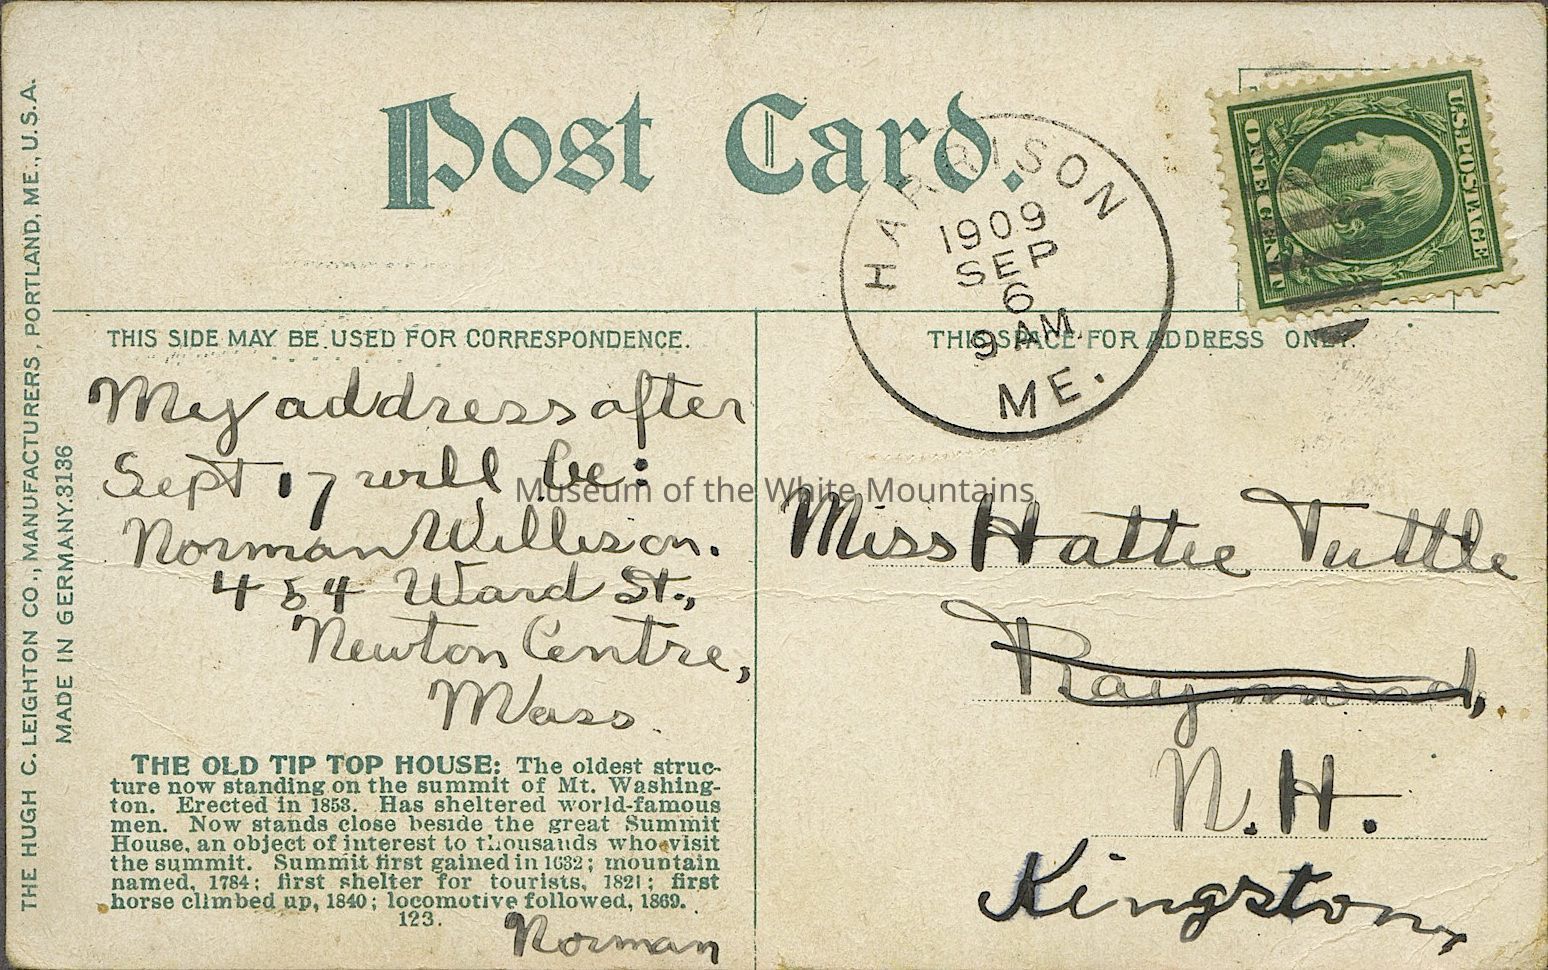 Post Card.
HARRISON
1909
SEP
6
9 AM
ME.
U.S. POSTAGE
ONE CENT
THIS SIDE MAY BE USED FOR CORRESPONDENCE.
THIS SPACE FOR ADDRESS ONLY.
My address after
Sept 17 will be:
Norman Willison.
454 Ward St.,
Newton Centre,
Mass.
Museum of the White Mountains
Miss Hattie Tuttle
Raymond,
N.H.
Kingston,
THE OLD TIP TOP HOUSE: The oldest struc-
ture now standing on the summit of Mt. Washing-
ton. Erected in 1853. Has sheltered world-famous
men. Now stands close beside the great Summit
House, an object of interest to thousands who visit
the summit. Summit first gained in 1632; mountain
named, 1784; first shelter for tourists, 1821; first
horse climbed up, 1840; locomotive followed, 1869.
123.
Norman
THE HUGH C. LEIGHTON CO., MANUFACTURERS, PORTLAND, ME., U.S.A.
MADE IN GERMANY. 3136